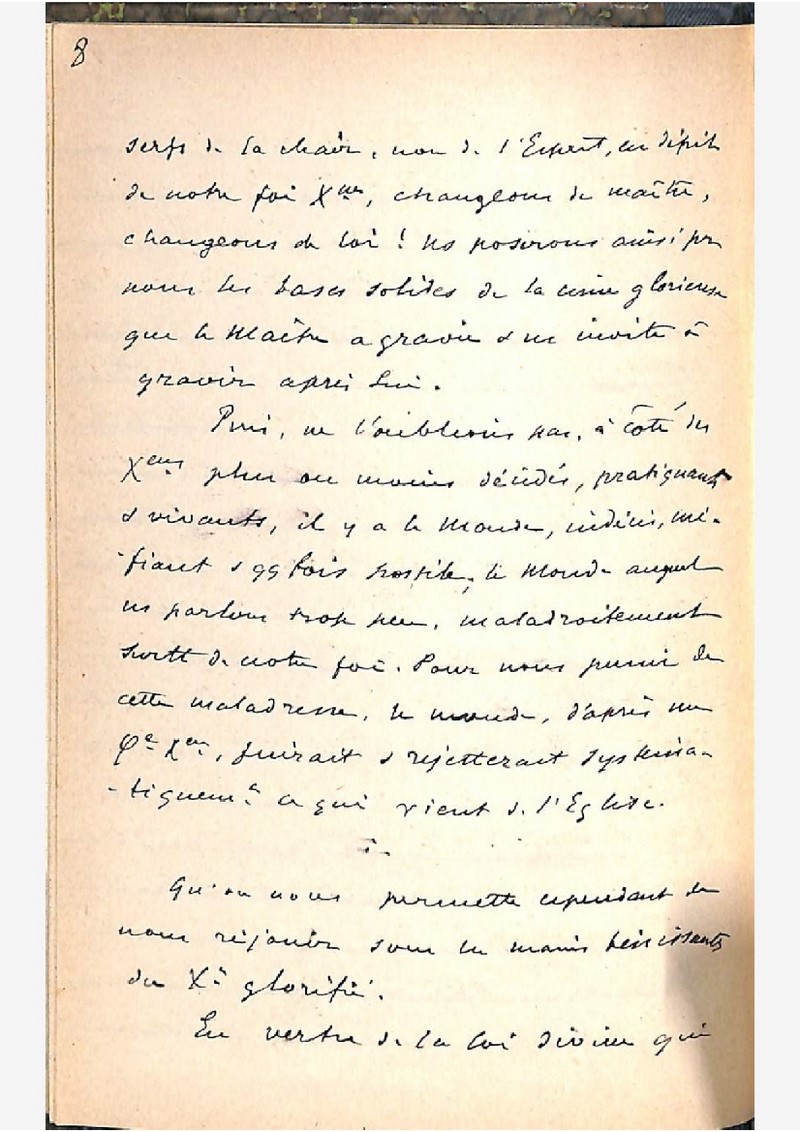 8
serfs de la chair, non de l'Esprit, en dépit
de notre foi Xne, changeons de maître,
changeons de loi ! Ns poserons ainsi pr
nous les bases solides de la cime glorieuse
que le Maître a gravie & ns invite à
gravir après Lui.
Puis, ne l'oublions pas, à côté des
Xens plus ou moins décidés, pratiquants
& vivants, il y a le Monde, indécis, mé-
-fiant & qq fois hostile, le Monde auquel
ns parlons trop peu, maladroitement
surtt de notre foi. Pour nous punir de
cette maladresse, le monde, d'après un
φe Xen, fuirait & rejetterait systéma-
-tiquemt ce qui vient de l'Eglise.
Qu'on nous permette cependant de
nous réjouir sous les mains bénissantes
du Xt glorifié.
En vertu de la loi divine qui